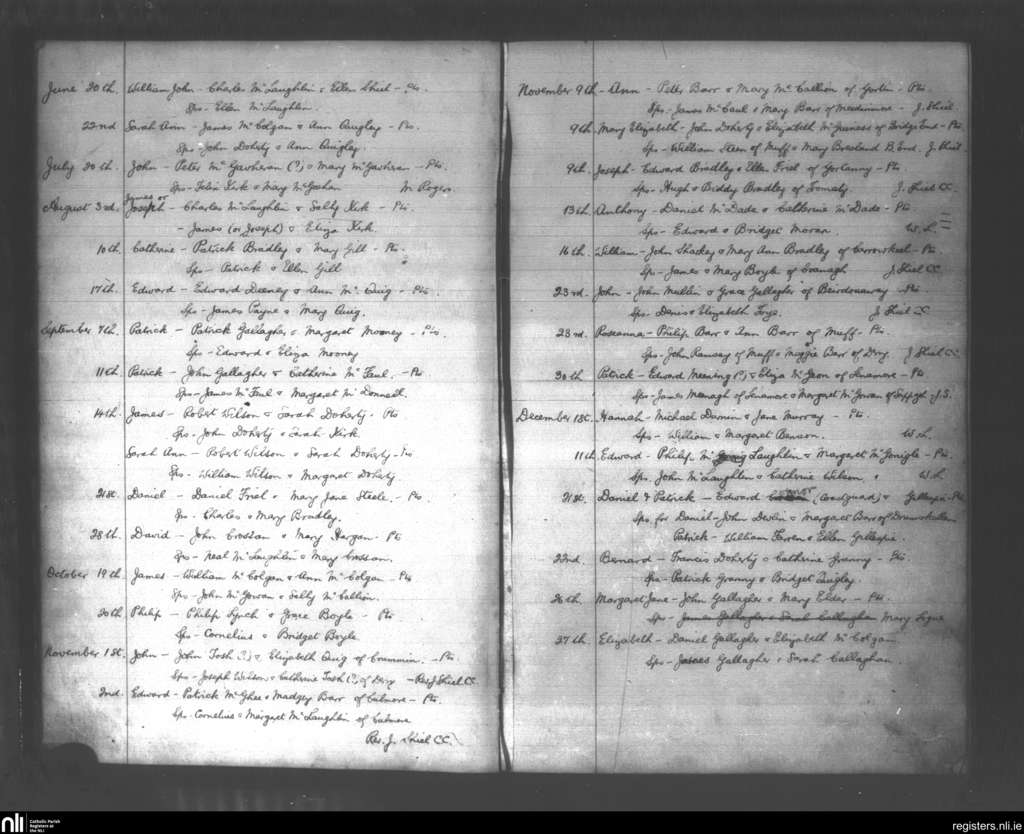 June 20th. William John - Charles McLaughlin & Ellen Shiel - Pts.
Sps - Ellen McLaughlin.
22nd Sarah Ann - James McColgan & Ann Quigley - Pts.
Sps - John Doherty & Ann Quigley.
July 20th. John - Peter McGavheran (?) & Mary McGavheran - Pts.
Sps - Felix Kirk & Mary McGoshan M. Rogers
August 3rd. James or Joseph - Charles McLaughlin & Sally Kirk - Pts.
- James (or Joseph) & Eliza Kirk.
10th. Catherine - Patrick Bradley & Mary Gill - Pts.
Sps - Patrick & Ellen Gill
17th. Edward - Edward Deeney & Ann McQuig - Pts.
Sps - James Payne & Mary Quig.
September 7th. Patrick - Patrick Gallagher & Margaret Mooney - Pts.
Sps - Edward & Eliza Mooney
11th. Patrick - John Gallagher & Catherine McFaul. - Pts
Sps - James McFaul & Margaret McDonnell.
14th. James - Robert Wilson & Sarah Doherty - Pts
Sps - John Doherty & Sarah Kirk.
Sarah Ann - Robert Wilson & Sarah Doherty - Pts
Sps. - William Wilson & Margaret Doherty
21st. Daniel - Daniel Friel & Mary Jane Steele. - Pts.
Sps. Charles & Mary Bradley.
28th. David - John Crossan & Mary Hargan - Pts
Sps - Neal McLaughlin & Mary Crossan.
October 19th. James - William McColgan & Ann McColgan - Pts
Sps - John McGowan & Sally McCallion.
20th Philip - Philip Lynch & Grace Boyle - Pts
Sps - Cornelius & Bridget Boyle
November 1st. John - John Tosh (?) & Elizabeth Quig of Crummin. - Pts.
Sps - Joseph Wilson & Catherine Tosh (?) of Derry - Rev J Shiel CC.
2nd. Edward - Patrick McGhee & Madgey Barr of Culmore - Pts.
Sps - Cornelius & Margaret McLaughlin of Culmore
Rev. J. Shiel CC.
November 9th - Ann - Peter Barr & Mary McCallion of Gortin - Pts.
Sps - James McCaul & Mary Barr of - J. Shiel.
9th. Mary Elizabeth - John Doherty & Elizabeth McGuiness of Bridge End - Pts
Sps - William Steen of Muff & Mary Bresland B. End. J. Shiel
9th. Joseph - Edward Bradley & Ellen Friel of - Pts
Sps - Hugh & Biddy Bradley of J. Shiel CC.
13th. Anthony - Daniel McDade & Catherine McDade - Pts.
Sps - Edward & Bridget Moran. W. L.
16th. William - John Sharkey & Mary Ann Bradley of Carrowkeel - Pts
Sps - James & Mary Boyle of Eranagh J Shiel CC.
23rd. John - John Mullin & Grace Gallagher of - Pts
Sps - Denis & Elizabeth J Shiel CC.
23rd. Roseanna - Philip Barr & Ann Barr of Muff - Pts.
Sps - John Ramsay of Muff & Maggie Barr of Derry. J Shiel CC.
30th Patrick - Edward Meening (?) & Eliza McGeon of - Pts
Sps - James Menagh of & Margaret McGowan of - J.S.
December 1st. Hannah - Michael & Jane Murray - Pts.
Sps - William & Margaret Benson. W. L.
11th. Edward - Philip McLaughlin & Margaret McGonigle - Pts.
Sps. John McLaughlin & Catherine Wilson. W. L
21st. Daniel & Patrick - Edward (Coastguard) & Gillespie - Pts
Sps for Daniel - John Devlin & Margaret Barr of Drumskellan
Patrick - William Farren & Ellen Gillespie.
22nd. Bernard - Francis Doherty & Catherine Granny - Pts
Sps - Patrick Granny & Bridget Quigley.
26th. Margaret Jane - John Gallagher & Mary Elder - Pts.
Sps - James Gallagher & Sarah Callaghan Mary Logue
27th. Elizabeth - Daniel Gallagher & Elizabeth McColgan
Sps - James Gallagher & Sarah Callaghan.
nli Catholic Parish Registers at the NLI
registers.nli.ie